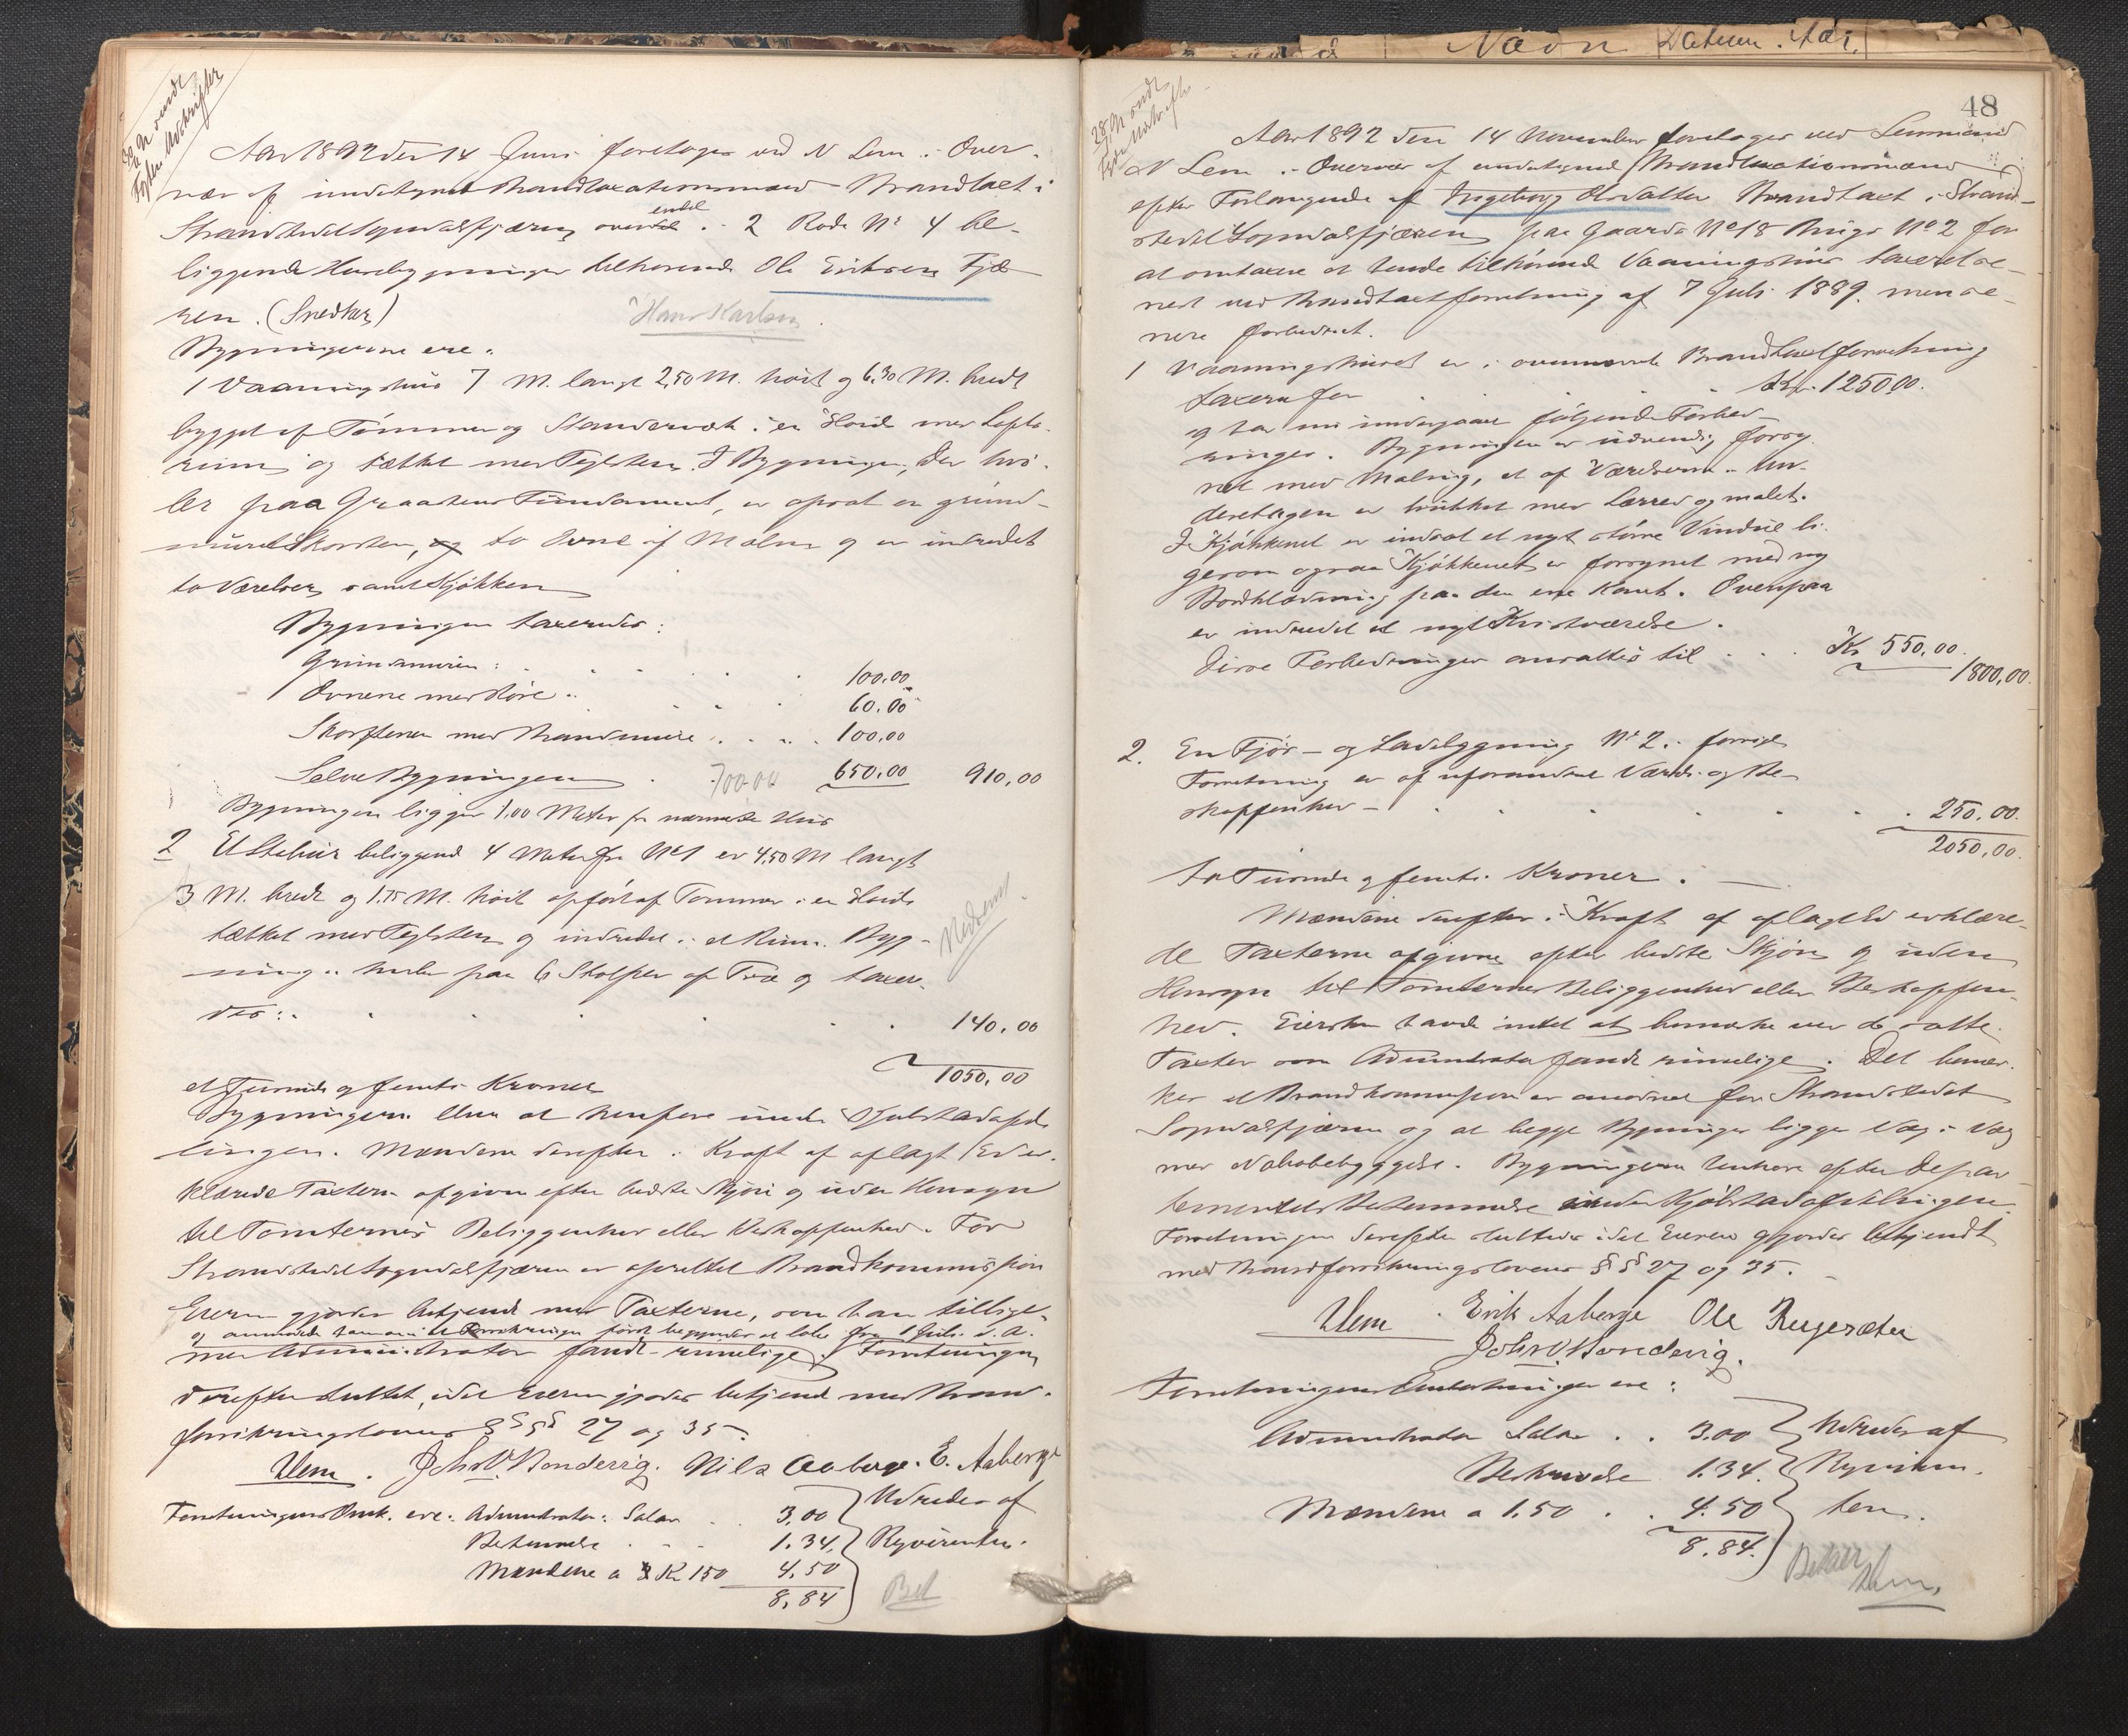 Aar 1892 den 14 Juni foretoges ved N Lem i Over-
vær af undertegnede Brandtaxationsmænd Brandtaxt i
Strandstedet Sogndalsfjæren
endel
2 Rode No 4 be-
liggende Husebygninger tilhørende Ole Eriksen Fjæ-
ren. (Snedker)
Hans Karlsen
Bygningerne ere:
1 Vaaningshus 7 M. langt 2,50 M. høit og 6,30 M. bredt
bygget af Tømmer og Standerværk i en Høide med Lofts-
rum og tækket med Teglsten. I Bygningen, der hvi-
ler paa Graastens Fundament, er opsat en grund-
muret Skorsten, og to Ovne af Malm og er indredet
to Værelser samt Kjøkken
Bygningen taxeredes:
Grundmuren: 100.00
Ovnene med Røre 60.00
Skorstenen med Brandmure 100.00
Selve Bygningen 700.00 650.00 910,00
Bygningen ligger 1,00 Meter fra nærmeste Hus
2 Et Stabur beliggende 4 Meter fra No 1 er 4,50 M langt
3 M. bredt og 1.75 M. høit opført af Tømmer i en Høide
tækket med Teglsten og indredet i et Rum. Byg-
ningen hviler paa 6 Stolper af Træ og taxer-
des: 140,00
1050,00
et Tusinde og femti Kroner
Bygningerne blive at henføre under Kjøbstadafde-
lingen. Mændene derefter i Kraft af aflagt Ed er-
klærede Taxterne afgivne efter bedste Skjøn og uden Hensyn
til Tomternes Beliggenhed eller Beskaffenhed. For
Strandstedet Sogndalsfjæren er oprettet Brandkommission
Eieren gjordes bekjendt med Taxterne, som han tillige-
og anmeldte han at Forsikringen først begynder at løbe fra 1 Juli d. A.
med Administrator fandt rimelige. Forretningen
derefter sluttet, idet Eieren gjordes bekjendt med Brand-
forsikringslovens §§ 27 og 35.
NLem. Johs O. Hondevig. Nils Aaberge. E. Aaberge
Forretningens Omk. ere: Administrator Salær 3,00 Udredes af
1.34 Reqvirenten.
Mændene a Kr 150 4,50
8,84
Bet
Nedrevet
48
Aar 1892 den 14 November foretoges ved Lensmand
N Lem i Overvær af undertegnede Brandtaxationsmænd
efter Forlangende af Ingeborg Olsdatter Brandtaxt i Strand-
stedet Sogndalsfjæren paa Gaards No 18 Brugs No 2 for
at omtaxere et hende tilhørende Vaaningshus taxeret se-
nest ved Brandtaxtforretning af 7 Juli 1889, men se-
nere forbedret.
1 Vaaningshuset er i ovennævnte Brandtaxtforretning
taxeret for Kr. 1250,00.
og har nu undergaaet følgende Forbed-
ringer. Bygningen er udvendig forsy-
net med Maling, et af Værelserne i Un-
deretagen er trukket med Lærred og malet.
I Kjøkkenet er indsat et nyt større Vindue li-
gesom ogsaa Kjøkkenet er forsynet med ny
Bordklædning paa den ene Kant. Ovenpaa
er indredet et nyt Kvistværelse.
Disse Forbedringer ansættes til Kr 550,00.
1800,00.
2. En Fjøs- og Ladebygning No 2 i forrige
Forretning er af uforandret Værdi og Be-
skaffenhed 250,00.
2050,00.
to Tusinde og femti Kroner.
Mændene derefter i Kraft af aflagt Ed erklære-
de Taxterne afgivne efter bedste Skjøn og uden
Hensyn til Tomternes Beliggenhed eller Beskaffen-
hed. Eiersken havde intet at bemærke ved de satte
Taxter som Administrator fandt rimelige. Det bemær-
kes at Brandkommission er anordnet for Strandstedet
Sogndalsfjæren og at begge Bygninger ligge Væg i Væg
med Nabobebyggelse. Bygningerne henhøre efter Depar-
tementets Bestemmelse under Kjøbstadafdelingen.
Forretningen derefter sluttedes idet Eieren gjordes bekjendt
med Brandforsikringslovens §§ 27 og 35.
NLem Erik Aaberge Ole Rugesæter
Johs O. Hondevig.
Forretningens Omkostninger ere:
Administrator Salær 3.00 Udredes af
1.34. Reqviren-
Mændene a 1.50 4.50 ten.
8.84.
Betalt
NLem